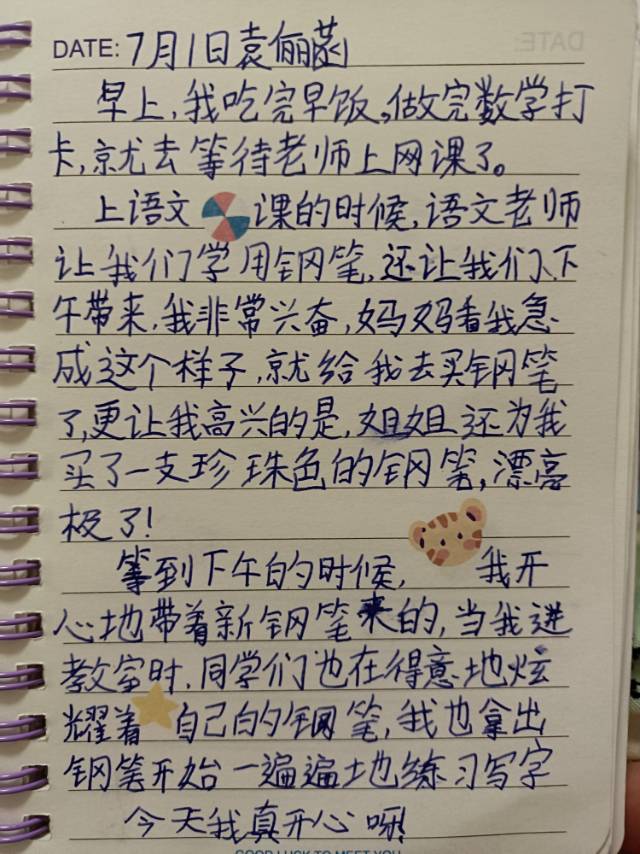 DATE: 7月1日袁俪菡
早上,我吃完早饭,做完数学打
卡,就去等待老师上网课了。
上语文课的时候,语文老师
让我们学用钢笔,还让我们下
午带来,我非常兴奋,妈妈看我急
成这个样子,就给我去买钢笔
了,更让我高兴的是,姐姐还为我
买了一支珍珠色的钢笔,漂亮
极了!
等到下午的时候,我开
心地带着新钢笔来的,当我进
教室时,同学们也在得意地炫
耀着自己的钢笔,我也拿出
钢笔开始一遍遍地练习写字
今天我真开心呀!
GOOD LUCK TO MEET YOU